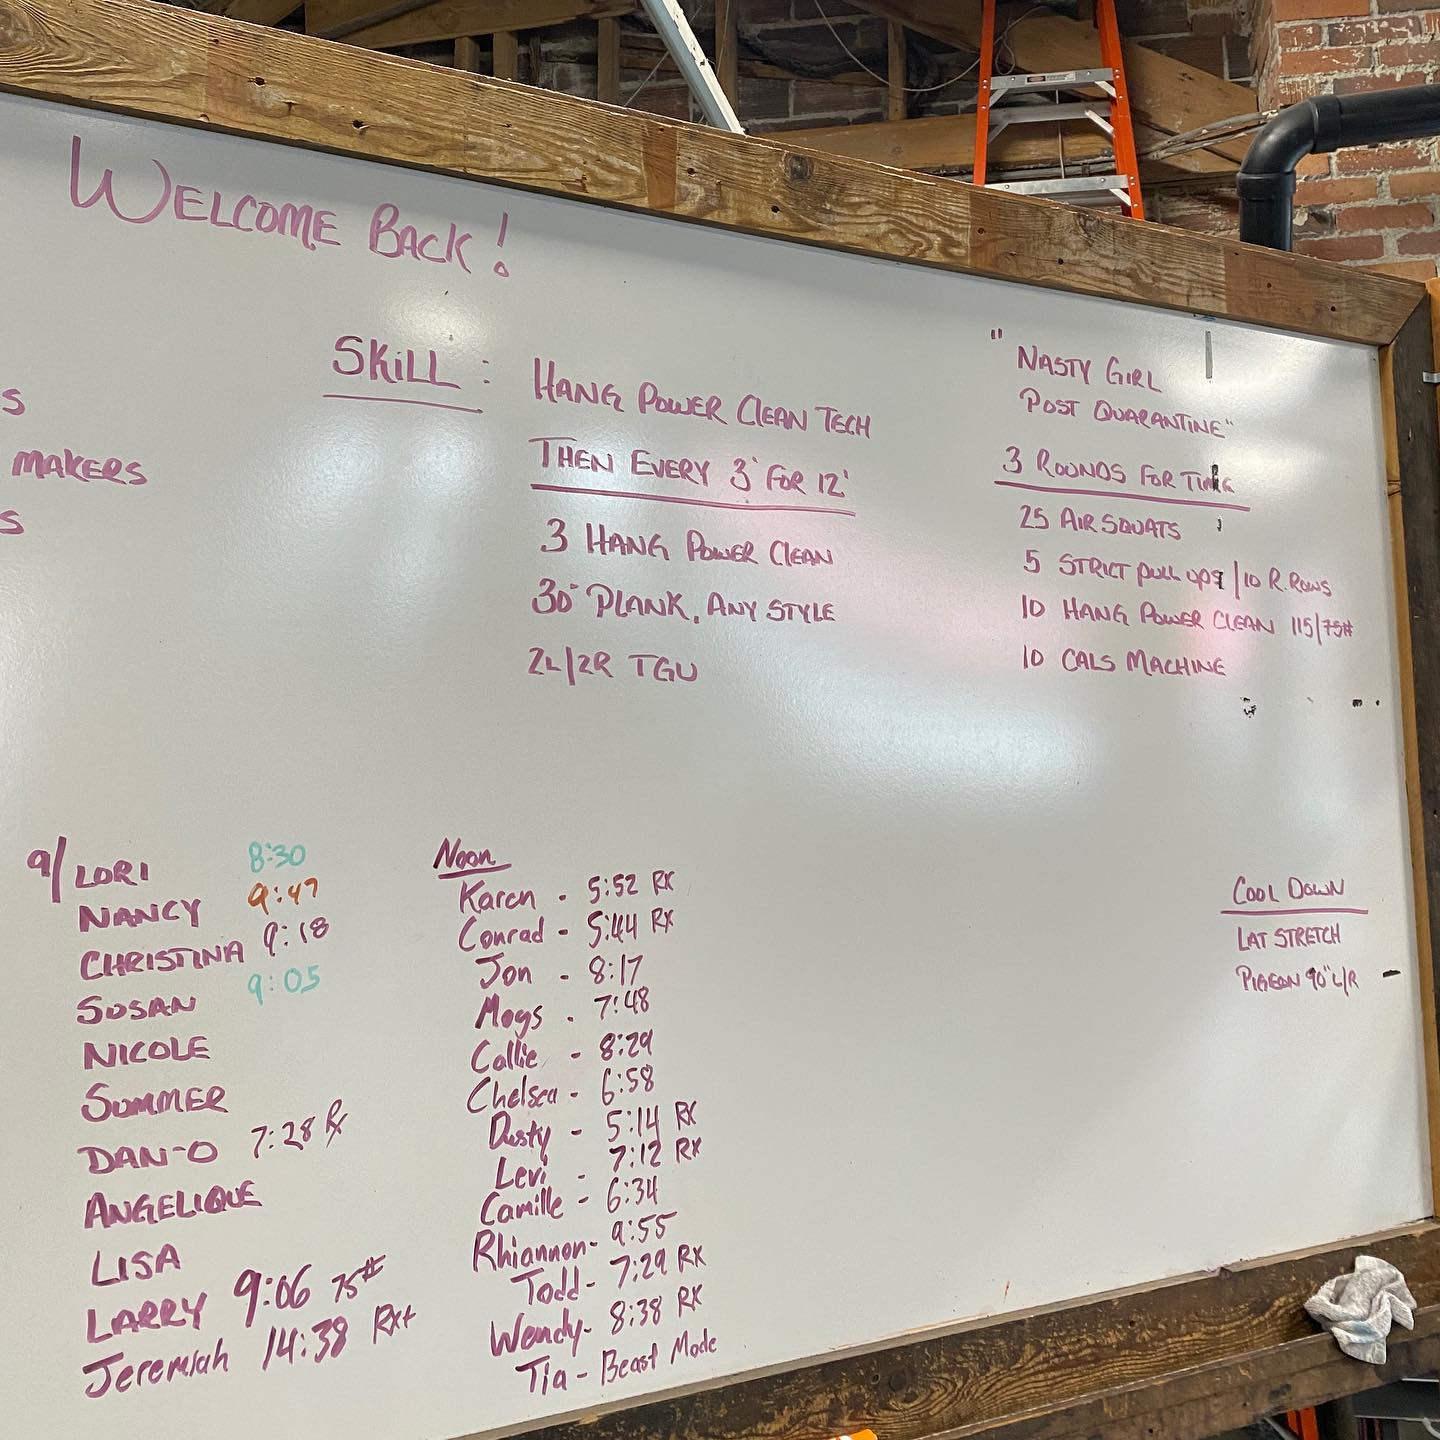 WELCOME BACK!
S
MAKERS
S
SKILL : HANG POWER CLEAN TECH
THEN EVERY 3' FOR 12'
3 HANG POWER CLEAN
30" PLANK, ANY STYLE
2L/2R TGU
"NASTY GIRL
POST QUARANTINE"
3 ROUNDS FOR TIME
25 AIR SQUATS
5 STRICT PULL UPS/10 R.ROWS
10 HANG POWER CLEAN 115/75#
10 CALS MACHINE
9/ LORI 8:30
NANCY 9:47
CHRISTINA 9:18
SUSAN 9:05
NICOLE
SUMMER
DAN-O 7:28 Rx
ANGELIQUE
LISA
LARRY 9:06 75#
Jeremiah 14:38 Rx+
Noon
Karen - 5:52 RX
Conrad - 5:44 RX
Jon - 8:17
Mogs - 7:48
Callie - 8:29
Chelsea - 6:58
Dusty - 5:14 RX
Levi - 7:12 RX
Camille - 6:34
Rhiannon - 9:55
Todd - 7:29 RX
Wendy - 8:38 RX
Tia - Beast Mode
COOL DOWN
LAT STRETCH
PIGEON 90" L/R